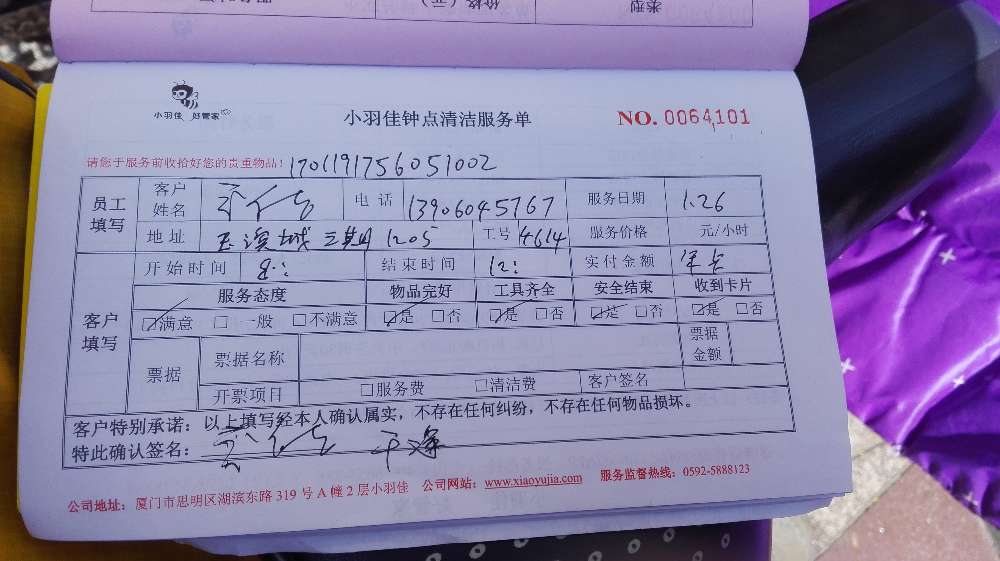 价格（元）
类型
小羽佳 好管家
小羽佳钟点清洁服务单
NO. 0064101
请您于服务前收拾好您的贵重物品！ 1701191756051002
员工填写
客户姓名
电话 13906045767
服务日期 1.26
地址 三期 1205
工号 4614
服务价格 元/小时
客户填写
开始时间 8:
结束时间 12:
实付金额
服务态度 物品完好 工具齐全 安全结束 收到卡片
☑满意 □一般 □不满意 ☑是 □否 ☑是 □否 ☑是 □否 ☑是 □否
票据
票据名称
票据金额
开票项目 □服务费 □清洁费 客户签名
客户特别承诺：以上填写经本人确认属实，不存在任何纠纷，不存在任何物品损坏。
特此确认签名：
公司地址：厦门市思明区湖滨东路 319 号 A 幢 2 层小羽佳 公司网站：www.xiaoyujia.com 服务监督热线：0592-5888123